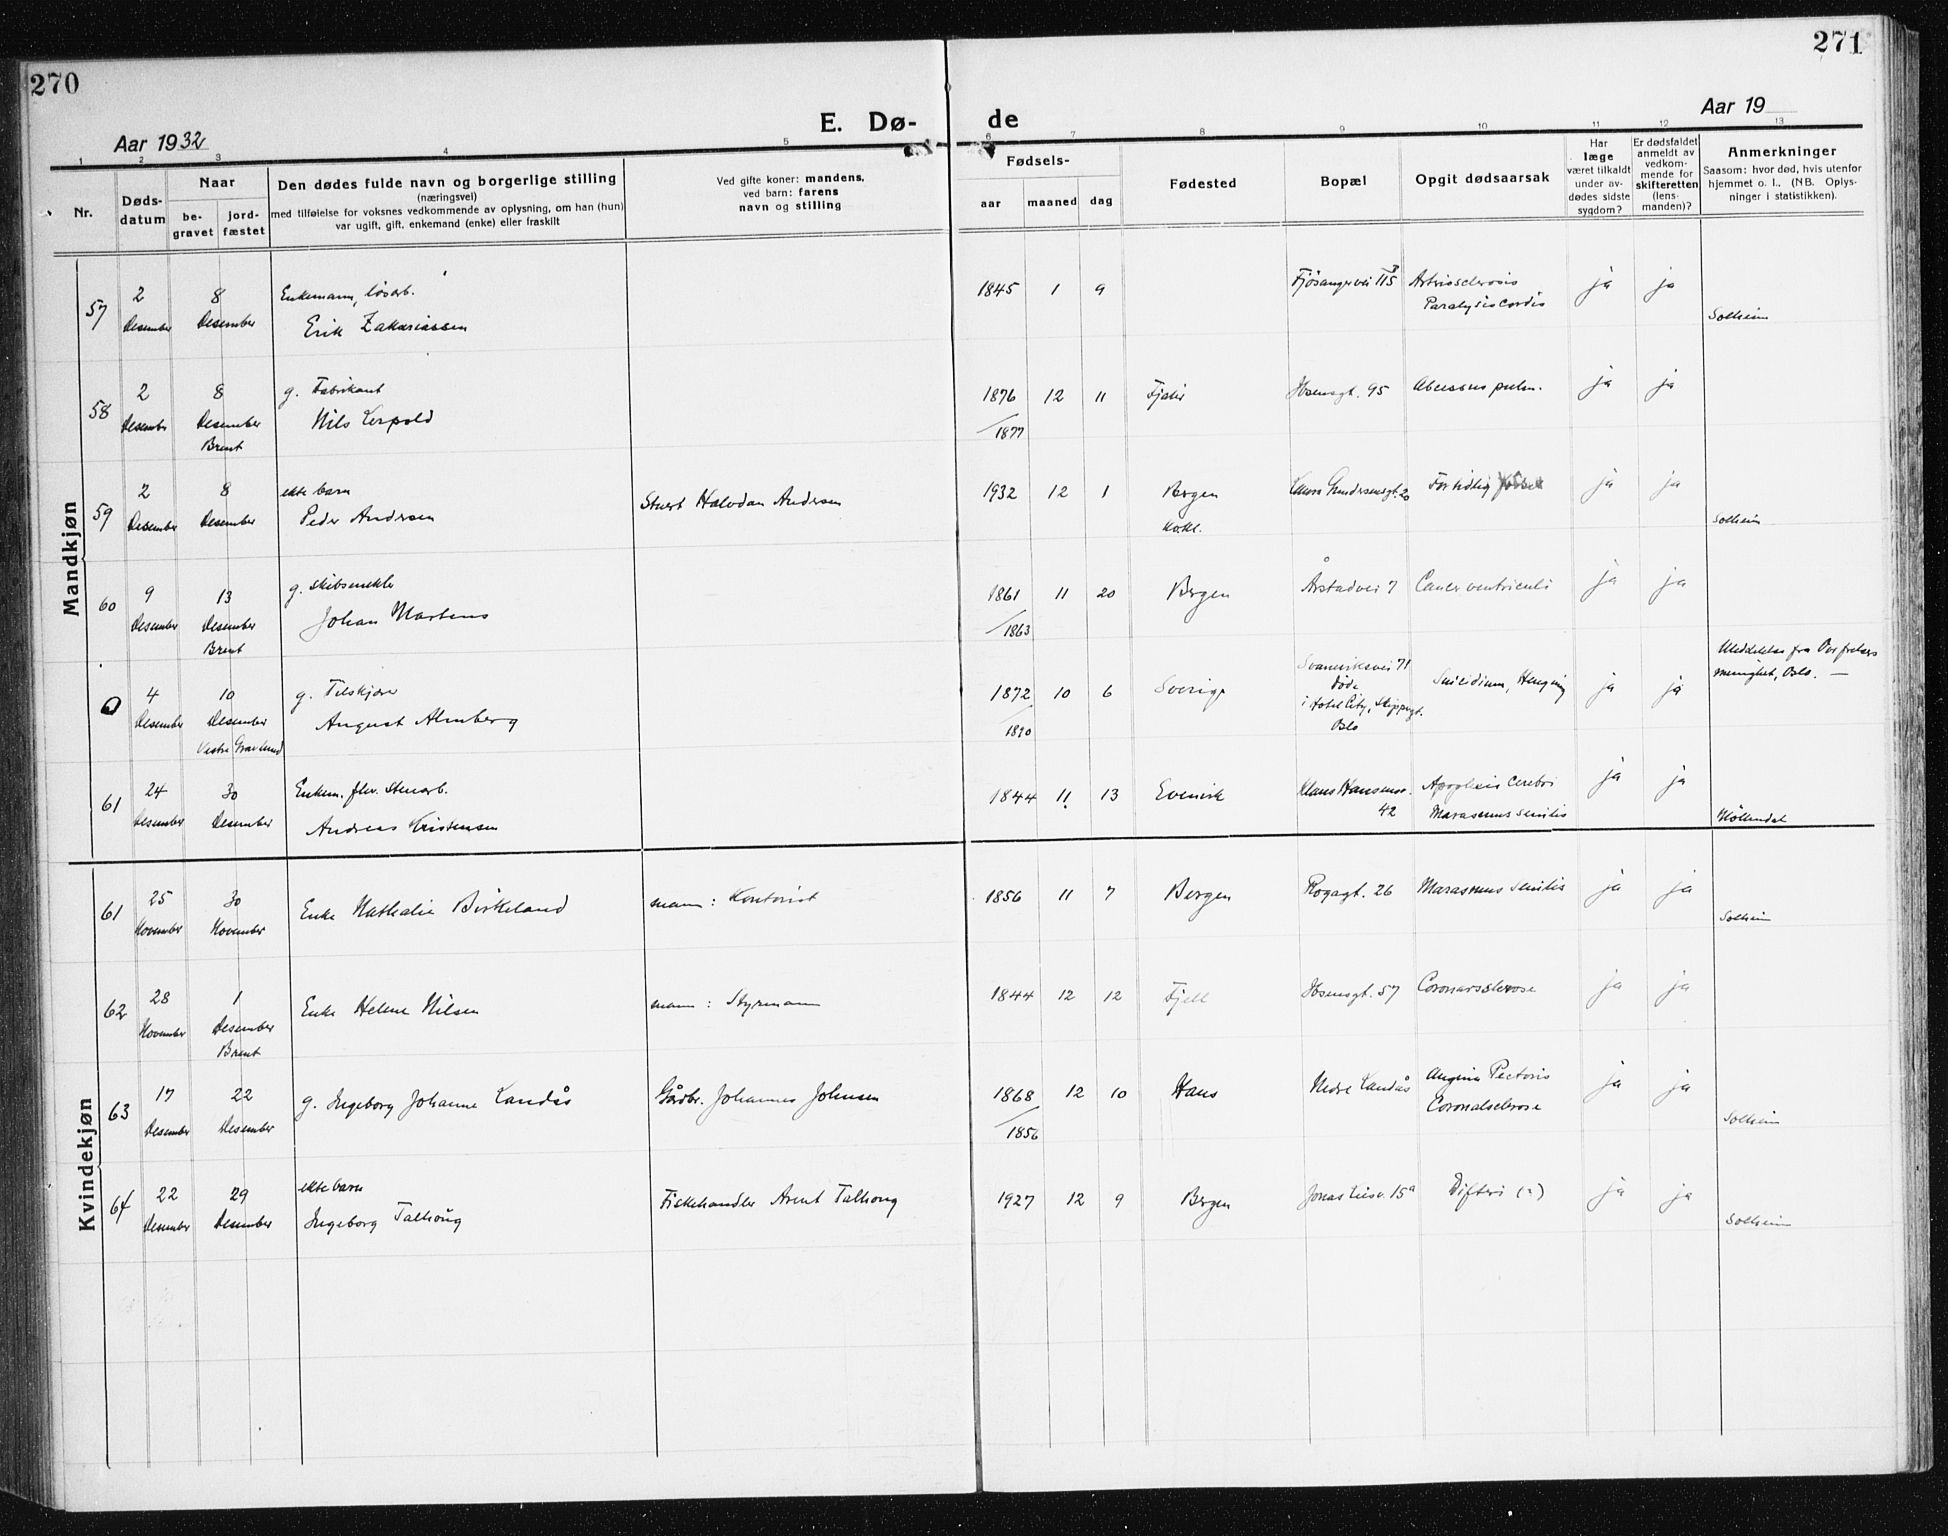 270
271
E. Dø- de
Aar 1932
Aar 19
1 2 3 4 5 6 7 8 9 10 11 12 13
Nr.
Døds-
datum
Naar
be-
gravet
jord-
fæstet
Den dødes fulde navn og borgerlige stilling
(næringsvei)
med tilføielse for voksnes vedkommende av oplysning, om han (hun)
var ugift, gift, enkemand (enke) eller fraskilt
Ved gifte koner: mandens,
ved barn: farens
navn og stilling
Fødsels-
aar maaned dag
Fødested
Bopæl
Opgit dødsaarsak
Har
læge
været tilkaldt
under av-
dødes sidste
sygdom?
Er dødsfaldet
anmeldt av
vedkom-
mende for
skifteretten
(lens-
manden)?
Anmerkninger
Saasom: hvor død, hvis utenfor
hjemmet o. l., (NB. Oplys-
ninger i statistikken).
Mandkjøn
57
2
Desember
8
Desember
Enkemann, løsarb.
Erik Zakariassen
1845 1 9
Fjøsangervei 115
Artriosclerosis
Paralysis cordis
ja ja
Solheim
58
2
Desember
8
Desember
Brent
g. Fabrikant
Nils Lerpold
1876 12 11
/1877
Ibsensgt. 95
Abcessus pulm.
ja ja
59
2
Desember
8
Desember
ekte barn
Peder Andersen
Stuert Halvdan Andersen
1932 12 1
Bergen
Kvkl.
Laura Gundersensgt. 20
For tidlig
ja ja
Solheim
60
9
Desember
13
Desember
Brent
g. skibsmekler
Johan Martens
1861 11 20
/1863
Bergen
Årstadvei 7
Cancer ventriculi
ja ja
0
4
Desember
10
Desember
Vestre Gravlund
g. Tilskjær
August Almberg
1872 10 6
/1890
Sverige
Svaneviksvei 71
døde
i Hotel City, Skippergt.
Oslo
Suicidium, Henging
ja ja
Meddelelse fra Vor frelsers
menighet, Oslo. —
61
24
Desember
30
Desember
Enkem. fhv. Stenarb.
Andreas Kristensen
1844 11 13
Evenvik
Klaus Hansensv.
42
Apoplexis cerebri
Marasmus senilis
ja ja
Møllendal
Kvindekjøn
61
25
November
30
November
Enke Nathalie Birkeland
mann: Kontorist
1856 11 7
Bergen
Rogagt. 26
Marasmus senilis
ja ja
Solheim
62
28
November
1
Desember
Brent
Enke Helene Nilsen
mann: Styrmann
1844 12 12
Fjell
Ibsensgt. 57
Coronarsclerose
ja ja
63
17
Desember
22
Desember
g. Ingeborg Johanne Landås
Gårdbr. Johannes Johnsen
1868 12 10
/1856
Hans
Nedre Landås
Angina Pectoris
Coronalsclerose
ja ja
Solheim
64
22
Desember
29
Desember
ekte barn
Ingeborg Talhoug
Fiskehandler Arent Talhoug
1927 12 9
Bergen
Jonas Liesv. 15a
Difteri (?)
ja ja
Solheim